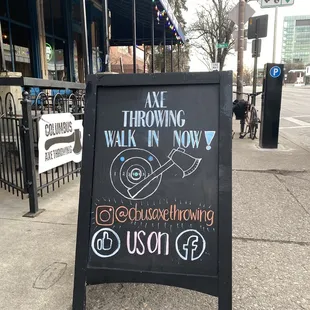 AXE
THROWING
WALK IN NOW!
@cbusaxethrowing
US ON
COLUMBUS
AXE THROWING
P